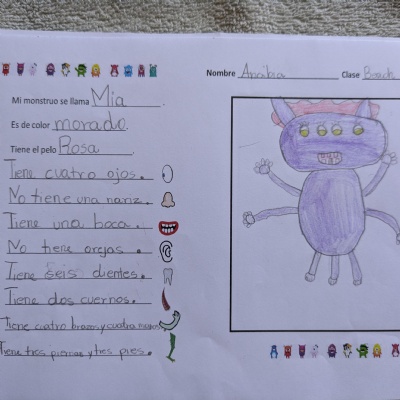 Nombre Clase Beach
Mi monstruo se llama Mia.
Es de color morado.
Tiene el pelo Rosa.
Tiene cuatro ojos.
No tiene una nariz.
Tiene una boca.
No tiene orejas.
Tiene seis dientes.
Tiene dos cuernos.
Tiene cuatro brazos y cuatro manos
Tiene tres piernas y tres pies.